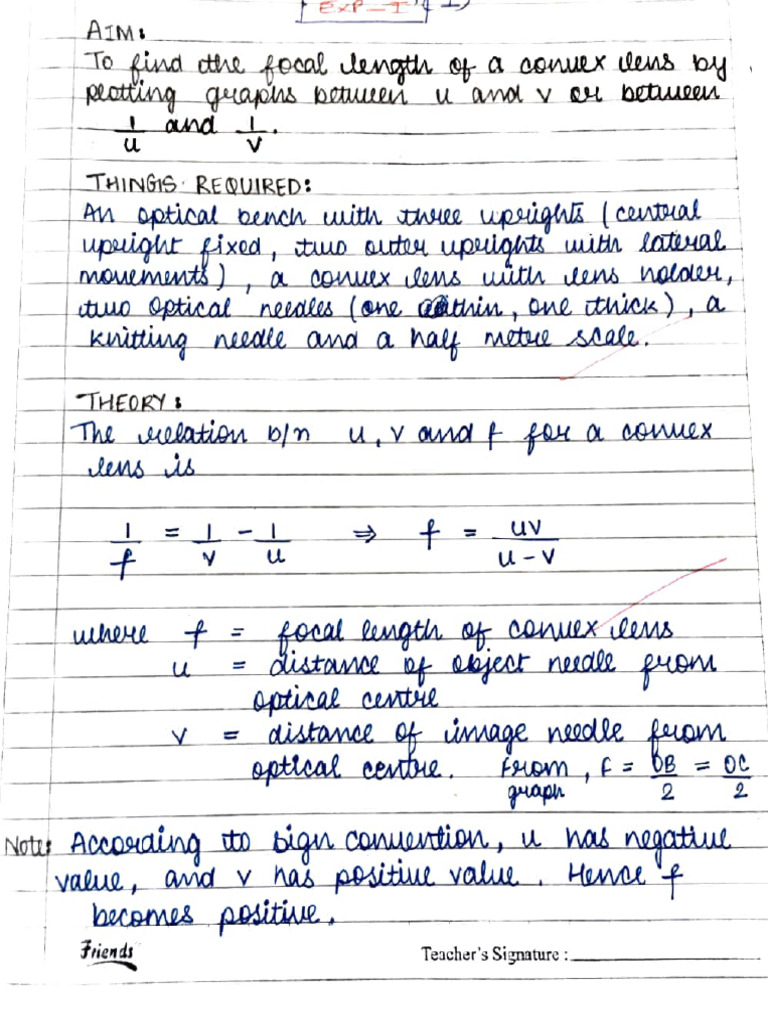 EXP-I
AIM:
To find the focal length of a convex lens by
plotting graphs between u and v or between
1/u and 1/v.
THINGS REQUIRED:
An optical bench with three uprights (central
upright fixed, two outer uprights with lateral
movements), a convex lens with lens holder,
two optical needles (one thin, one thick), a
knitting needle and a half metre scale.
THEORY:
The relation b/n u, v and f for a convex
lens is
1/f = 1/v - 1/u ⇒ f = uv/u-v
where f = focal length of convex lens
u = distance of object needle from
optical centre
v = distance of image needle from
optical centre. From graph, f = OB/2 = OC/2
Note: According to sign convention, u has negative
value, and v has positive value. Hence f
becomes positive.
Friends Teacher's Signature :